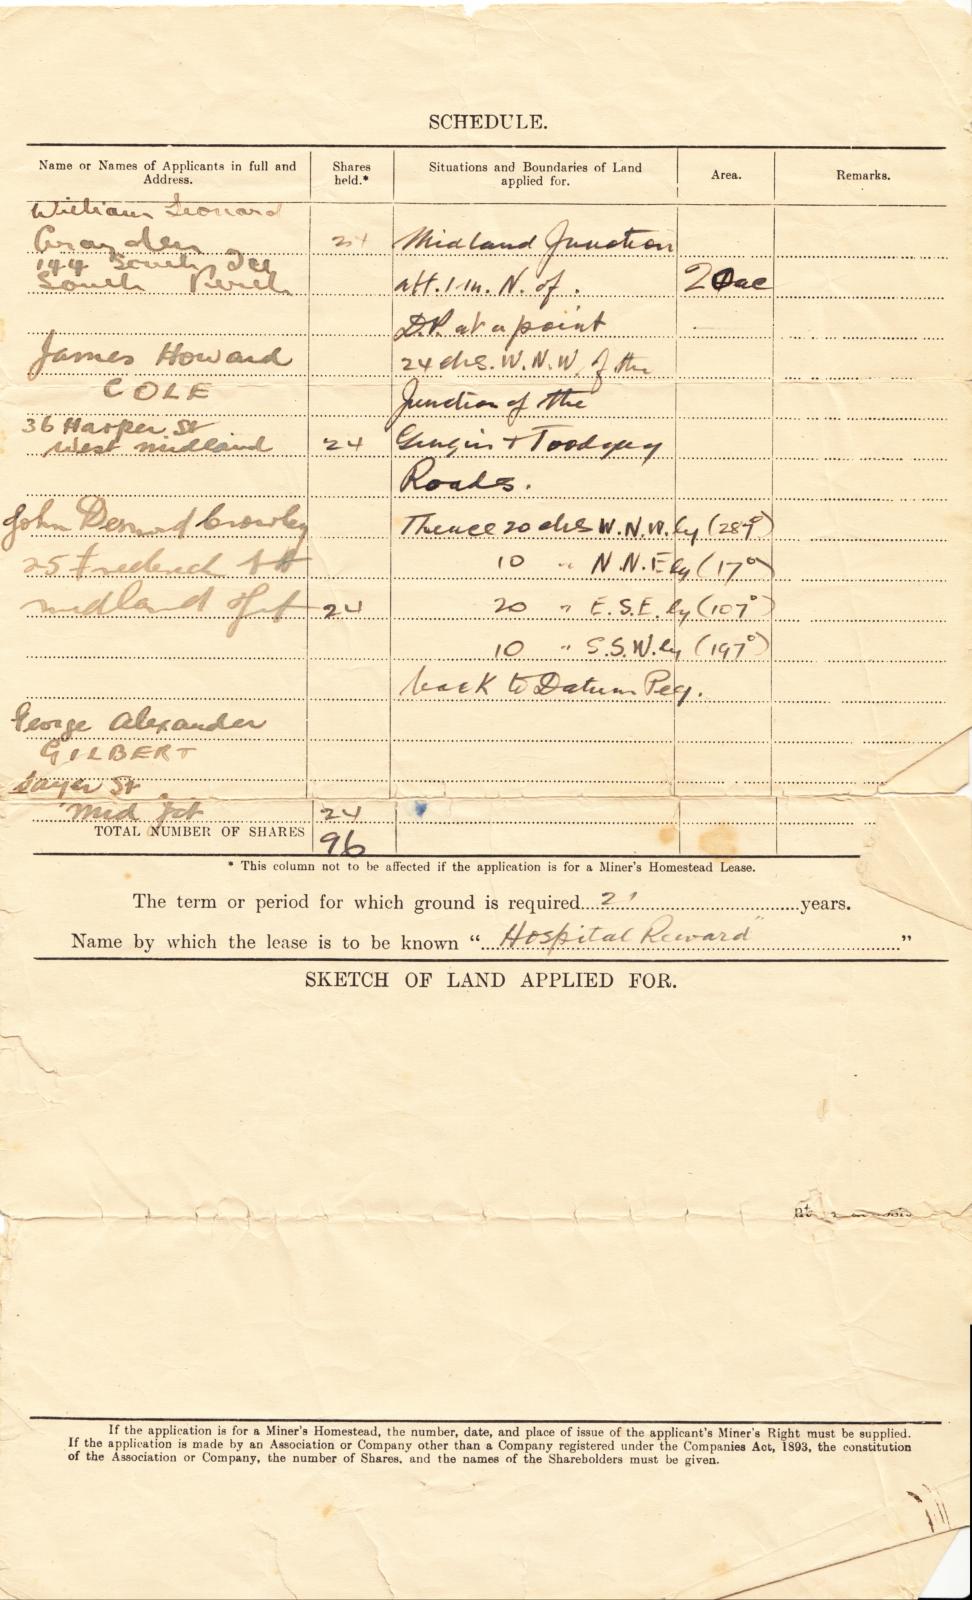 SCHEDULE.
Name or Names of Applicants in full and Address.
Shares held.*
Situations and Boundaries of Land applied for.
Area.
Remarks.
William Leonard
Grayden 24
144 South Tce
South Perth
James Howard
COLE
36 Harper St
West Midland 24
John Desmond Crowley
25 Frederick St
Midland Jct 24
George Alexander
GILBERT
Sayer St
Mid Jct 24
TOTAL NUMBER OF SHARES 96
Midland Junction
abt. 1 m. N. of.
D.P. at a point
24 chs. W.N.W. of the
Junction of the
Gingin + Toodyay
Roads.
Thence 20 chs W.N.W.ly (287°)
10 " N.N.E.ly (17°)
20 " E.S.E.ly (107°)
10 " S.S.W.ly (197°)
back to Datum Peg.
20ac
* This column not to be affected if the application is for a Miner's Homestead Lease.
The term or period for which ground is required 21 years.
Name by which the lease is to be known “ Hospital Reward" ”
SKETCH OF LAND APPLIED FOR.
nt
If the application is for a Miner's Homestead, the number, date, and place of issue of the applicant's Miner's Right must be supplied.
If the application is made by an Association or Company other than a Company registered under the Companies Act, 1893, the constitution
of the Association or Company, the number of Shares, and the names of the Shareholders must be given.